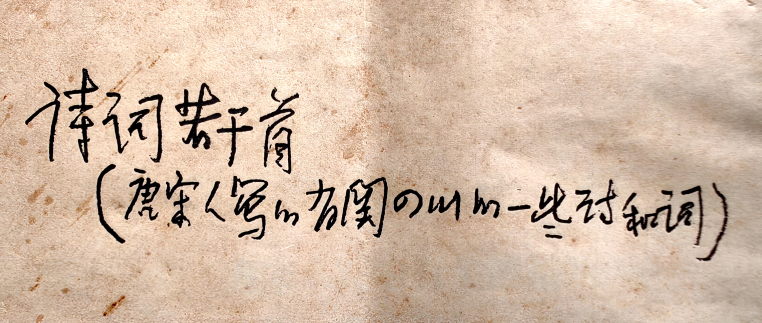 诗词若干首
(唐宋人写的有関四川的一些诗和词)